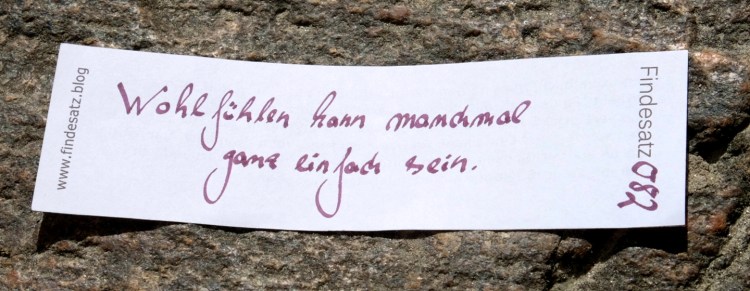 www.findesatz.blog
Wohlfühlen kann manchmal
ganz einfach sein.
Findesatz 082